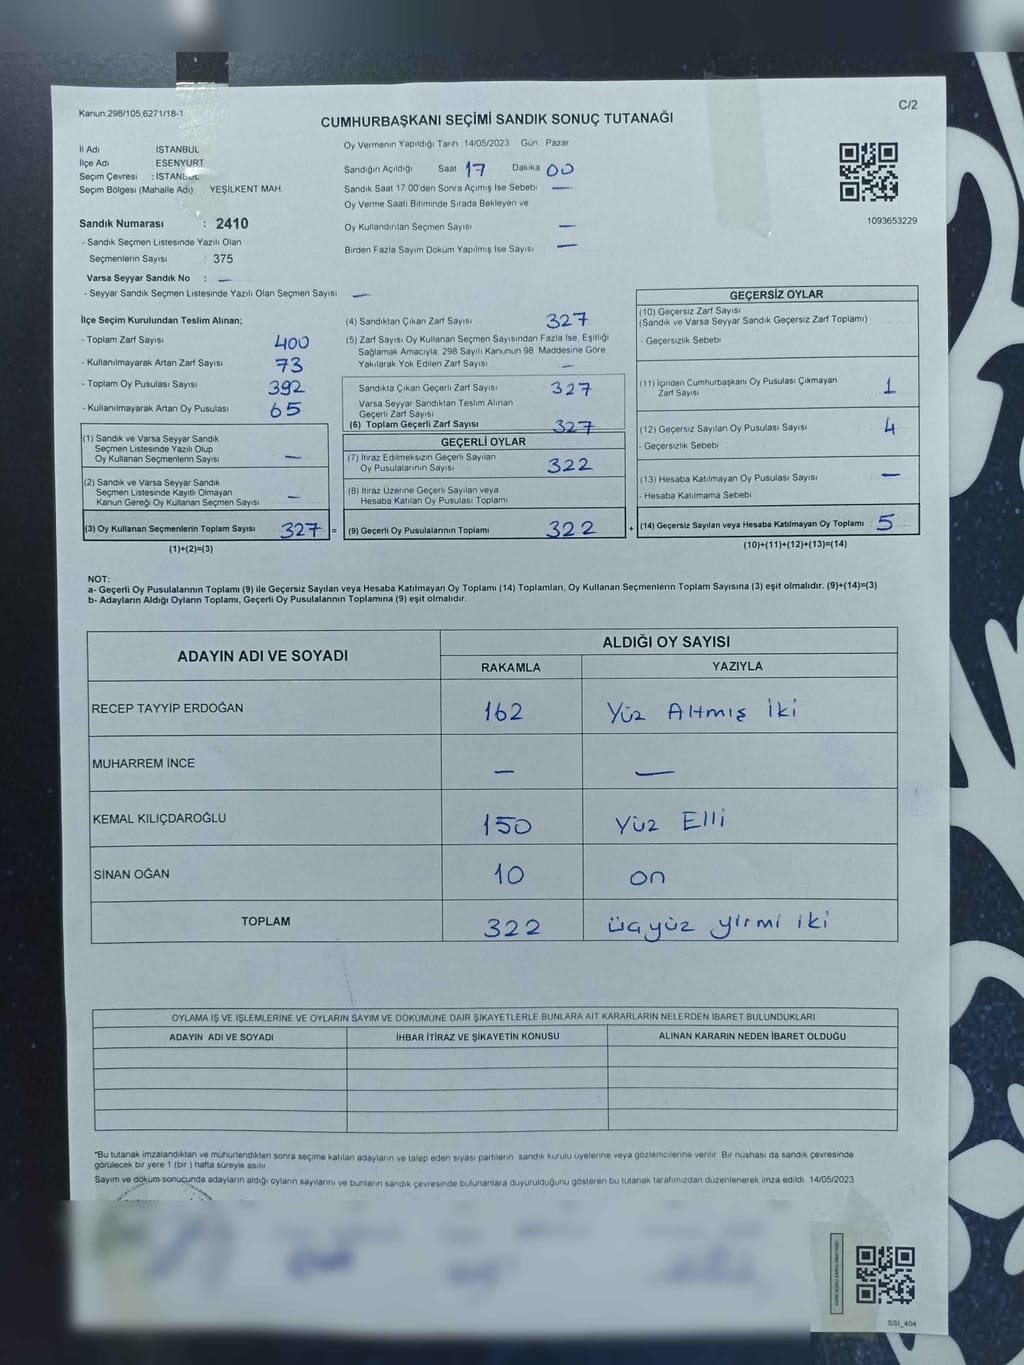 Kanun:298/105,6271/18-1
C/2
CUMHURBAŞKANI SEÇİMİ SANDIK SONUÇ TUTANAĞI
İl Adı İSTANBUL
İlçe Adı : ESENYURT
Seçim Çevresi : İSTANBUL
Seçim Bölgesi (Mahalle Adı) YEŞİLKENT MAH.
Oy Vermenin Yapıldığı Tarih 14/05/2023 Gün : Pazar
Sandığın Açıldığı Saat 17 Dakika 00
Sandık Saat 17.00'den Sonra Açılmış İse Sebebi —
Oy Verme Saati Bitiminde Sırada Bekleyen ve
Oy Kullandırılan Seçmen Sayısı —
Birden Fazla Sayım Döküm Yapılmış İse Sayısı —
1093653229
Sandık Numarası : 2410
- Sandık Seçmen Listesinde Yazılı Olan
Seçmenlerin Sayısı : 375
Varsa Seyyar Sandık No : —
- Seyyar Sandık Seçmen Listesinde Yazılı Olan Seçmen Sayısı —
İlçe Seçim Kurulundan Teslim Alınan;
- Toplam Zarf Sayısı 400
- Kullanılmayarak Artan Zarf Sayısı 73
- Toplam Oy Pusulası Sayısı 392
- Kullanılmayarak Artan Oy Pusulası 65
(1) Sandık ve Varsa Seyyar Sandık
Seçmen Listesinde Yazılı Olup
Oy Kullanan Seçmenlerin Sayısı —
(2) Sandık ve Varsa Seyyar Sandık
Seçmen Listesinde Kayıtlı Olmayan
Kanun Gereği Oy Kullanan Seçmen Sayısı —
(3) Oy Kullanan Seçmenlerin Toplam Sayısı 327 =
(1)+(2)=(3)
(4) Sandıktan Çıkan Zarf Sayısı 327
(5) Zarf Sayısı Oy Kullanan Seçmen Sayısından Fazla İse, Eşitliği
Sağlamak Amacıyla, 298 Sayılı Kanunun 98. Maddesine Göre
Yakılarak Yok Edilen Zarf Sayısı —
Sandıkta Çıkan Geçerli Zarf Sayısı 327
Varsa Seyyar Sandıktan Teslim Alınan
Geçerli Zarf Sayısı
(6) Toplam Geçerli Zarf Sayısı 327
GEÇERLİ OYLAR
(7) İtiraz Edilmeksizin Geçerli Sayılan
Oy Pusulalarının Sayısı 322
(8) İtiraz Üzerine Geçerli Sayılan veya
Hesaba Katılan Oy Pusulası Toplamı
(9) Geçerli Oy Pusulalarının Toplamı 322 +
GEÇERSİZ OYLAR
(10) Geçersiz Zarf Sayısı
(Sandık ve Varsa Seyyar Sandık Geçersiz Zarf Toplamı)
- Geçersizlik Sebebi
(11) İçinden Cumhurbaşkanı Oy Pusulası Çıkmayan
Zarf Sayısı 1
(12) Geçersiz Sayılan Oy Pusulası Sayısı 4
- Geçersizlik Sebebi
(13) Hesaba Katılmayan Oy Pusulası Sayısı —
- Hesaba Katılmama Sebebi
(14) Geçersiz Sayılan veya Hesaba Katılmayan Oy Toplamı : 5
(10)+(11)+(12)+(13)=(14)
NOT:
a- Geçerli Oy Pusulalarının Toplamı (9) ile Geçersiz Sayılan veya Hesaba Katılmayan Oy Toplamı (14) Toplamları, Oy Kullanan Seçmenlerin Toplam Sayısına (3) eşit olmalıdır. (9)+(14)=(3)
b- Adayların Aldığı Oyların Toplamı, Geçerli Oy Pusulalarının Toplamına (9) eşit olmalıdır.
ADAYIN ADI VE SOYADI ALDIĞI OY SAYISI
RAKAMLA YAZIYLA
RECEP TAYYİP ERDOĞAN 162 Yüz Altmış iki
MUHARREM İNCE — —
KEMAL KILIÇDAROĞLU 150 Yüz Elli
SİNAN OĞAN 10 on
TOPLAM 322 üçyüz yirmi iki
OYLAMA İŞ VE İŞLEMLERİNE VE OYLARIN SAYIM VE DÖKÜMÜNE DAİR ŞİKAYETLERLE BUNLARA AİT KARARLARIN NELERDEN İBARET BULUNDUKLARI
ADAYIN ADI VE SOYADI İHBAR İTİRAZ VE ŞİKAYETİN KONUSU ALINAN KARARIN NEDEN İBARET OLDUĞU
*Bu tutanak imzalandıktan ve mühürlendikten sonra seçime katılan adayların ve talep eden siyasi partilerin sandık kurulu üyelerine veya gözlemcilerine verilir. Bir nüshası da sandık çevresinde
görülecek bir yere 1 (bir ) hafta süreyle asılır.
Sayım ve döküm sonucunda adayların aldığı oyların sayılarını ve bunların sandık çevresinde bulunanlara duyurulduğunu gösteren bu tutanak tarafımızdan düzenlenerek imza edildi. 14/05/2023
SSI_404